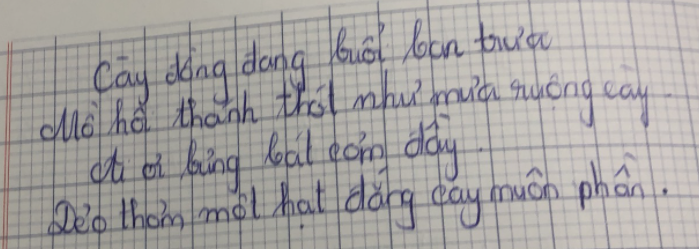 Cày đồng đang buổi ban trưa
Mồ hôi thánh thót như mưa ruộng cày.
Ai ơi bưng bát cơm đầy.
Dẻo thơm một hạt đắng cay muôn phần.